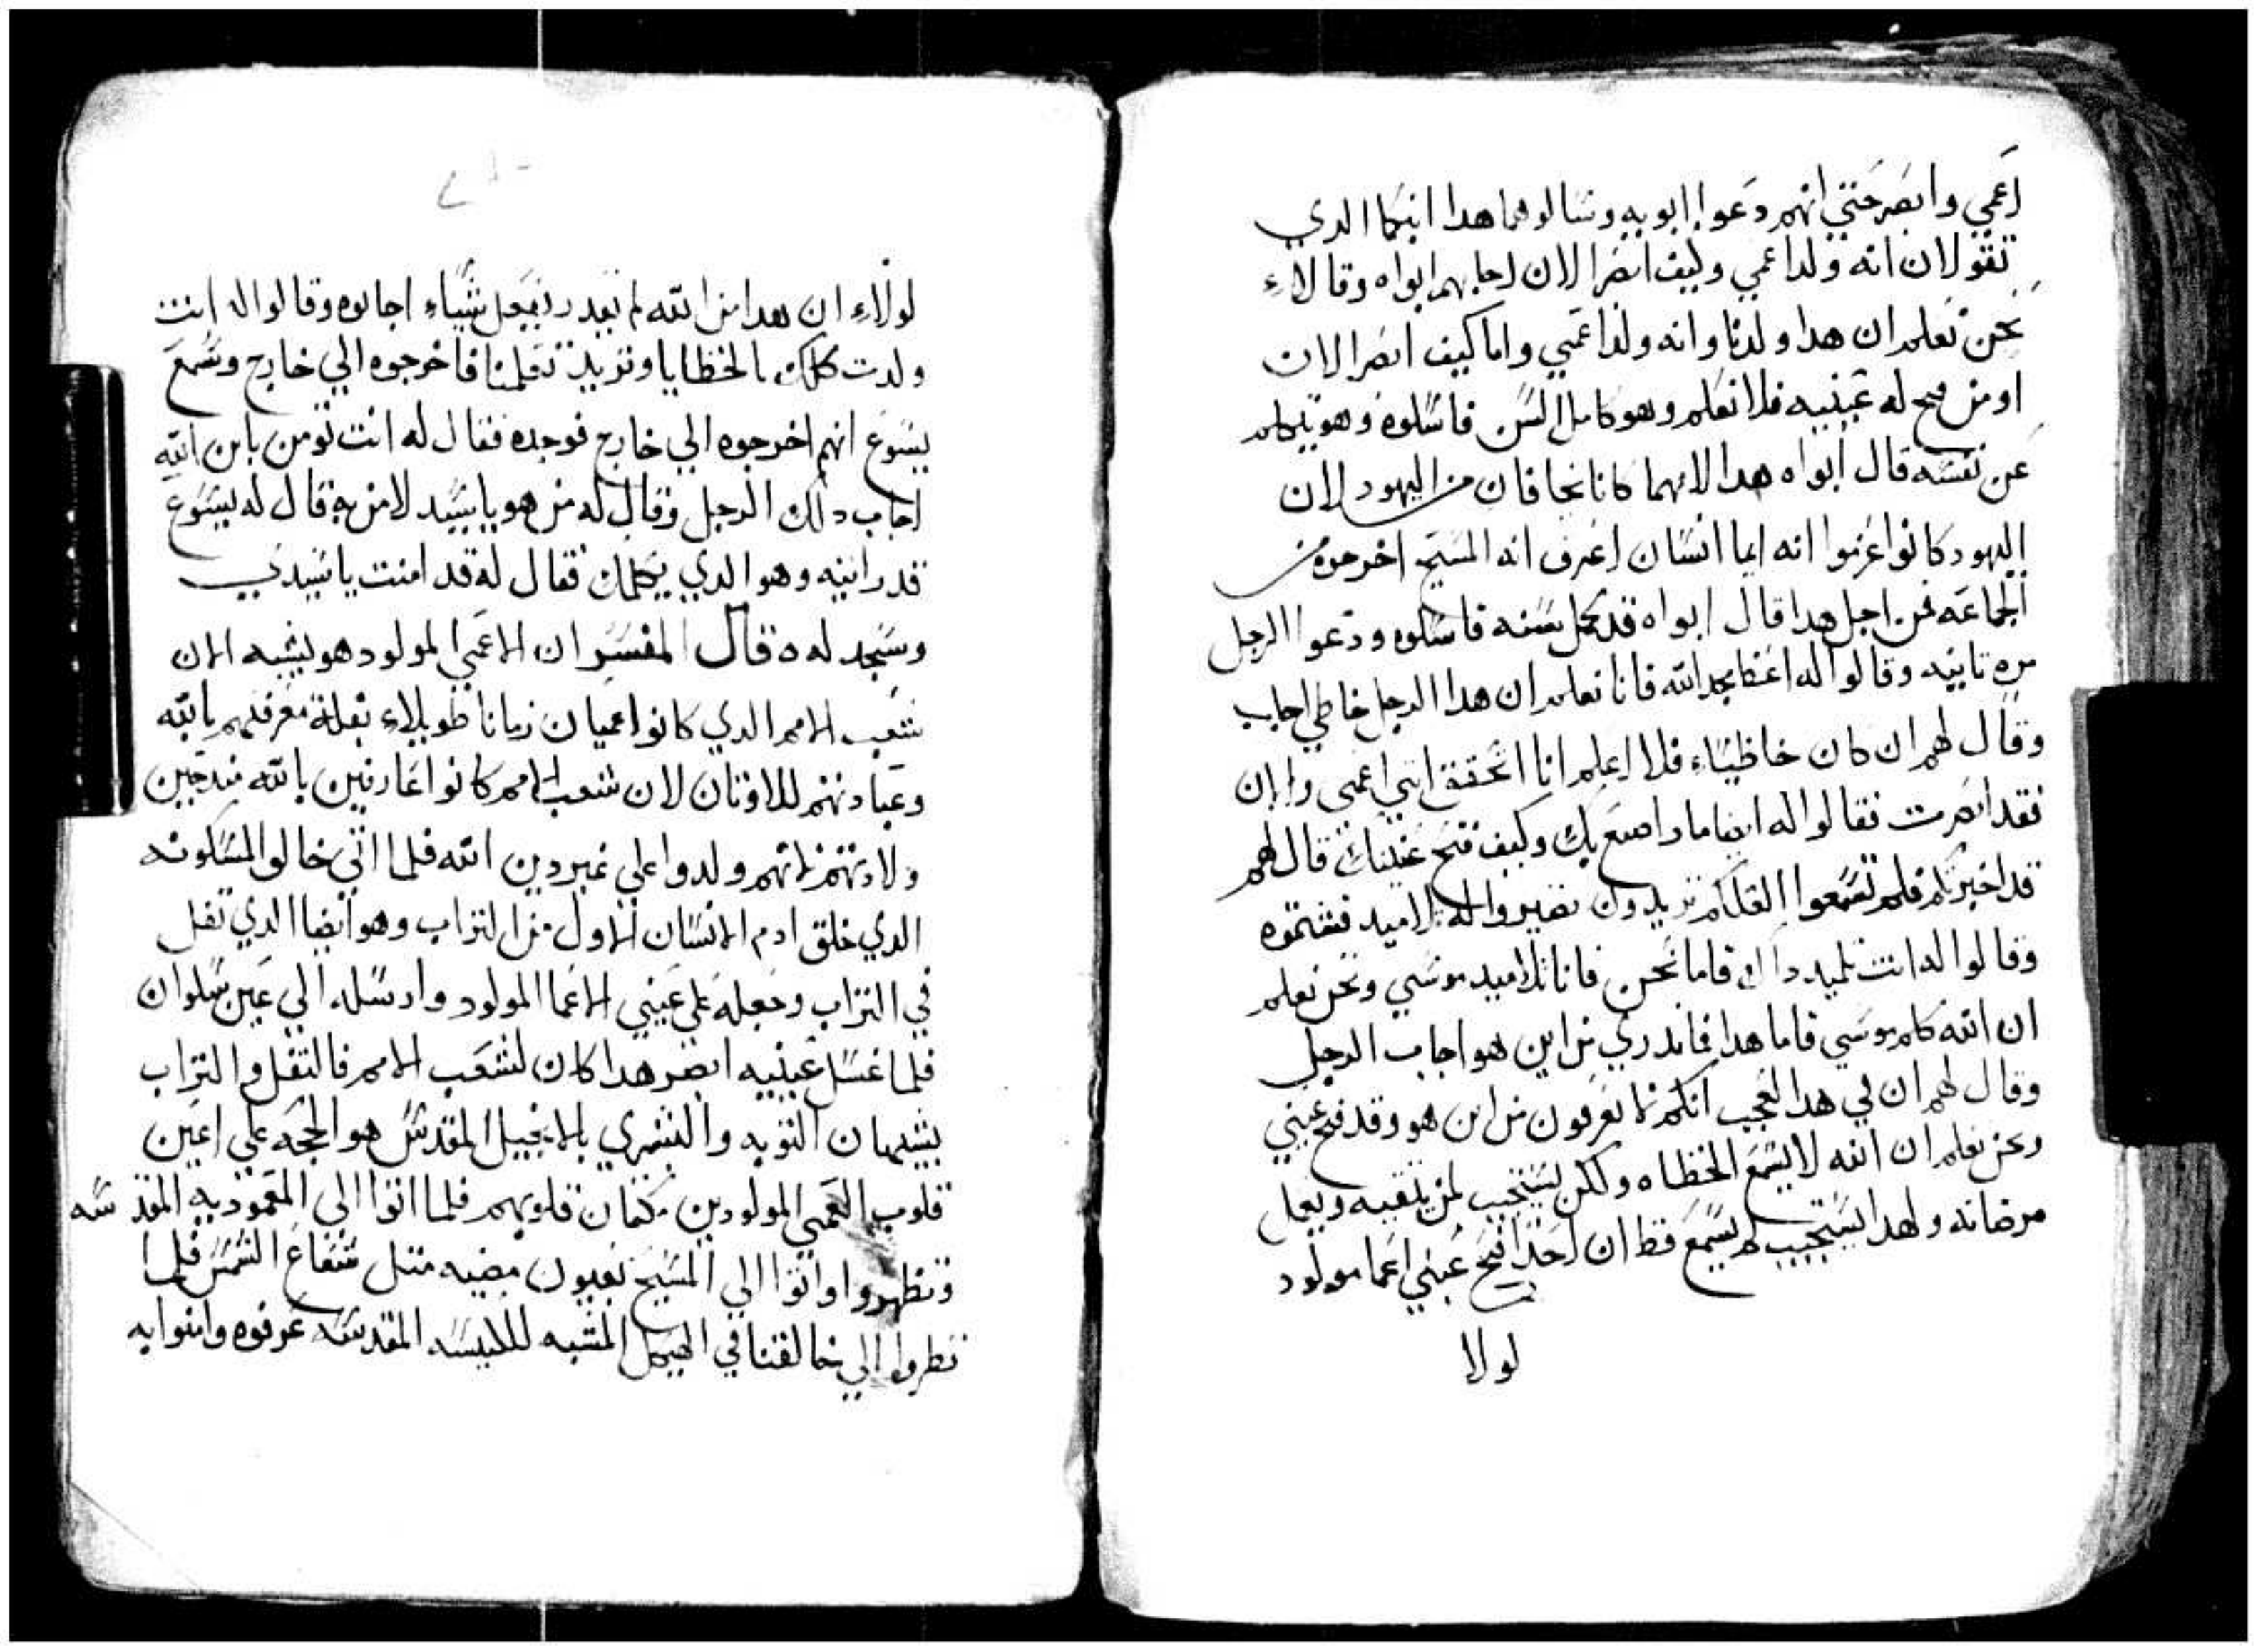 اعمي وابصر حتي انهم دعوا ابويه وسالوهما هدا ابنكما الدي
تقولان انه ولد اعمي وكيف ابصر الان اجابهم ابواه وقالاء
نحن نعلم ان هدا ولدنا وانه ولد اعمي واما كيف ابصر الان
او من فتح له عينيه فلا نعلم وهو كامل السن فاسلوه وهو يتكلم
عن نفسه قال ابواه هدا لانهما كانا يخافان من اليهود لان
اليهود كانوا عزموا انه ايما انسان اعترف انه المسيح اخرجوه من
الجماعه فمن اجل هدا قال ابواه قد كمل سنه فاسلوه ودعوا الرجل
مره تانيه وقالوا له اعطا مجد الله فانا نعلم ان هدا الرجل خاطي اجاب
وقال لهم ان كان خاطيء فلا اعلم انا اتحقق انني اعمي والان
فقد ابصرت فقالوا له ايضا مادا صنع بك وكيف فتح عينيك قال لهم
قد اخبرتكم فلم تسمعوا العلكم تريدون تصيروا له تلاميد فشتموه
وقالوا له انت تلميد داك فاما نحن فانا تلاميد موسي ونحن نعلم
ان الله كلم موسي فاما هدا فما ندري من اين هو اجاب الرجل
وقال لهم ان في هدا العجب انكم لم تعرفون من اين هو وقد فتح عيني
ونحن نعلم ان الله لا يسمع الخطاه ولكن يستجيب لمن يتقيه ويعمل
مرضاته ولهدا يستجيب لم يسمع قط ان احدا فتح عيني اعما مولود
لولا
لولاء ان هدا من الله لم يقدر يفعل شياء اجابوه وقالوا له انت
ولدت كلك بالخطايا وتريد تعلمنا فاخرجوه الي خارج وسمع
يسوع انهم اخرجوه الي خارج فوجده فقال له انت تومن بابن الله
اجاب دلك الرجل وقال له من هو يا سيد لامن به قال له يسوع
قد رايته وهو الدي يكلمك فقال له قد امنت يا سيدي
وسجد له ه قال المفسر ان الاعمي المولود هو يشبه الان
شعب الامم الدي كانوا عميان زمانا طويلاء بقلة معرفتهم بالله
وعبادتهم للاوتان لان شعب الامم كانوا عارفين بالله
ولادتهم لانهم ولدوا علي غير دين الله فلما اتي خالق المسكونه
الدي خلق ادم الانسان الاول من التراب وهو ايضا الدي تفل
في التراب وجعله علي عيني الاعما المولود وارسله الي عين سلوان
فلما غسل عينيه ابصر هدا كان لشعب الامم فالتفل والتراب
يشبهان التوبه والبشري بالانجيل المقدس هو الحجه علي اعين
قلوب العمي المولودين بكتمان قلوبهم فلما اتوا الي المعموديه المقدسه
وتطهروا واتوا الي المسيح بعيون مضيه متل شعاع الشمس فلما
نظروا الي خالقنا في الهيكل المشبه للكنيسه المقدسه عرفوه وامنوا به